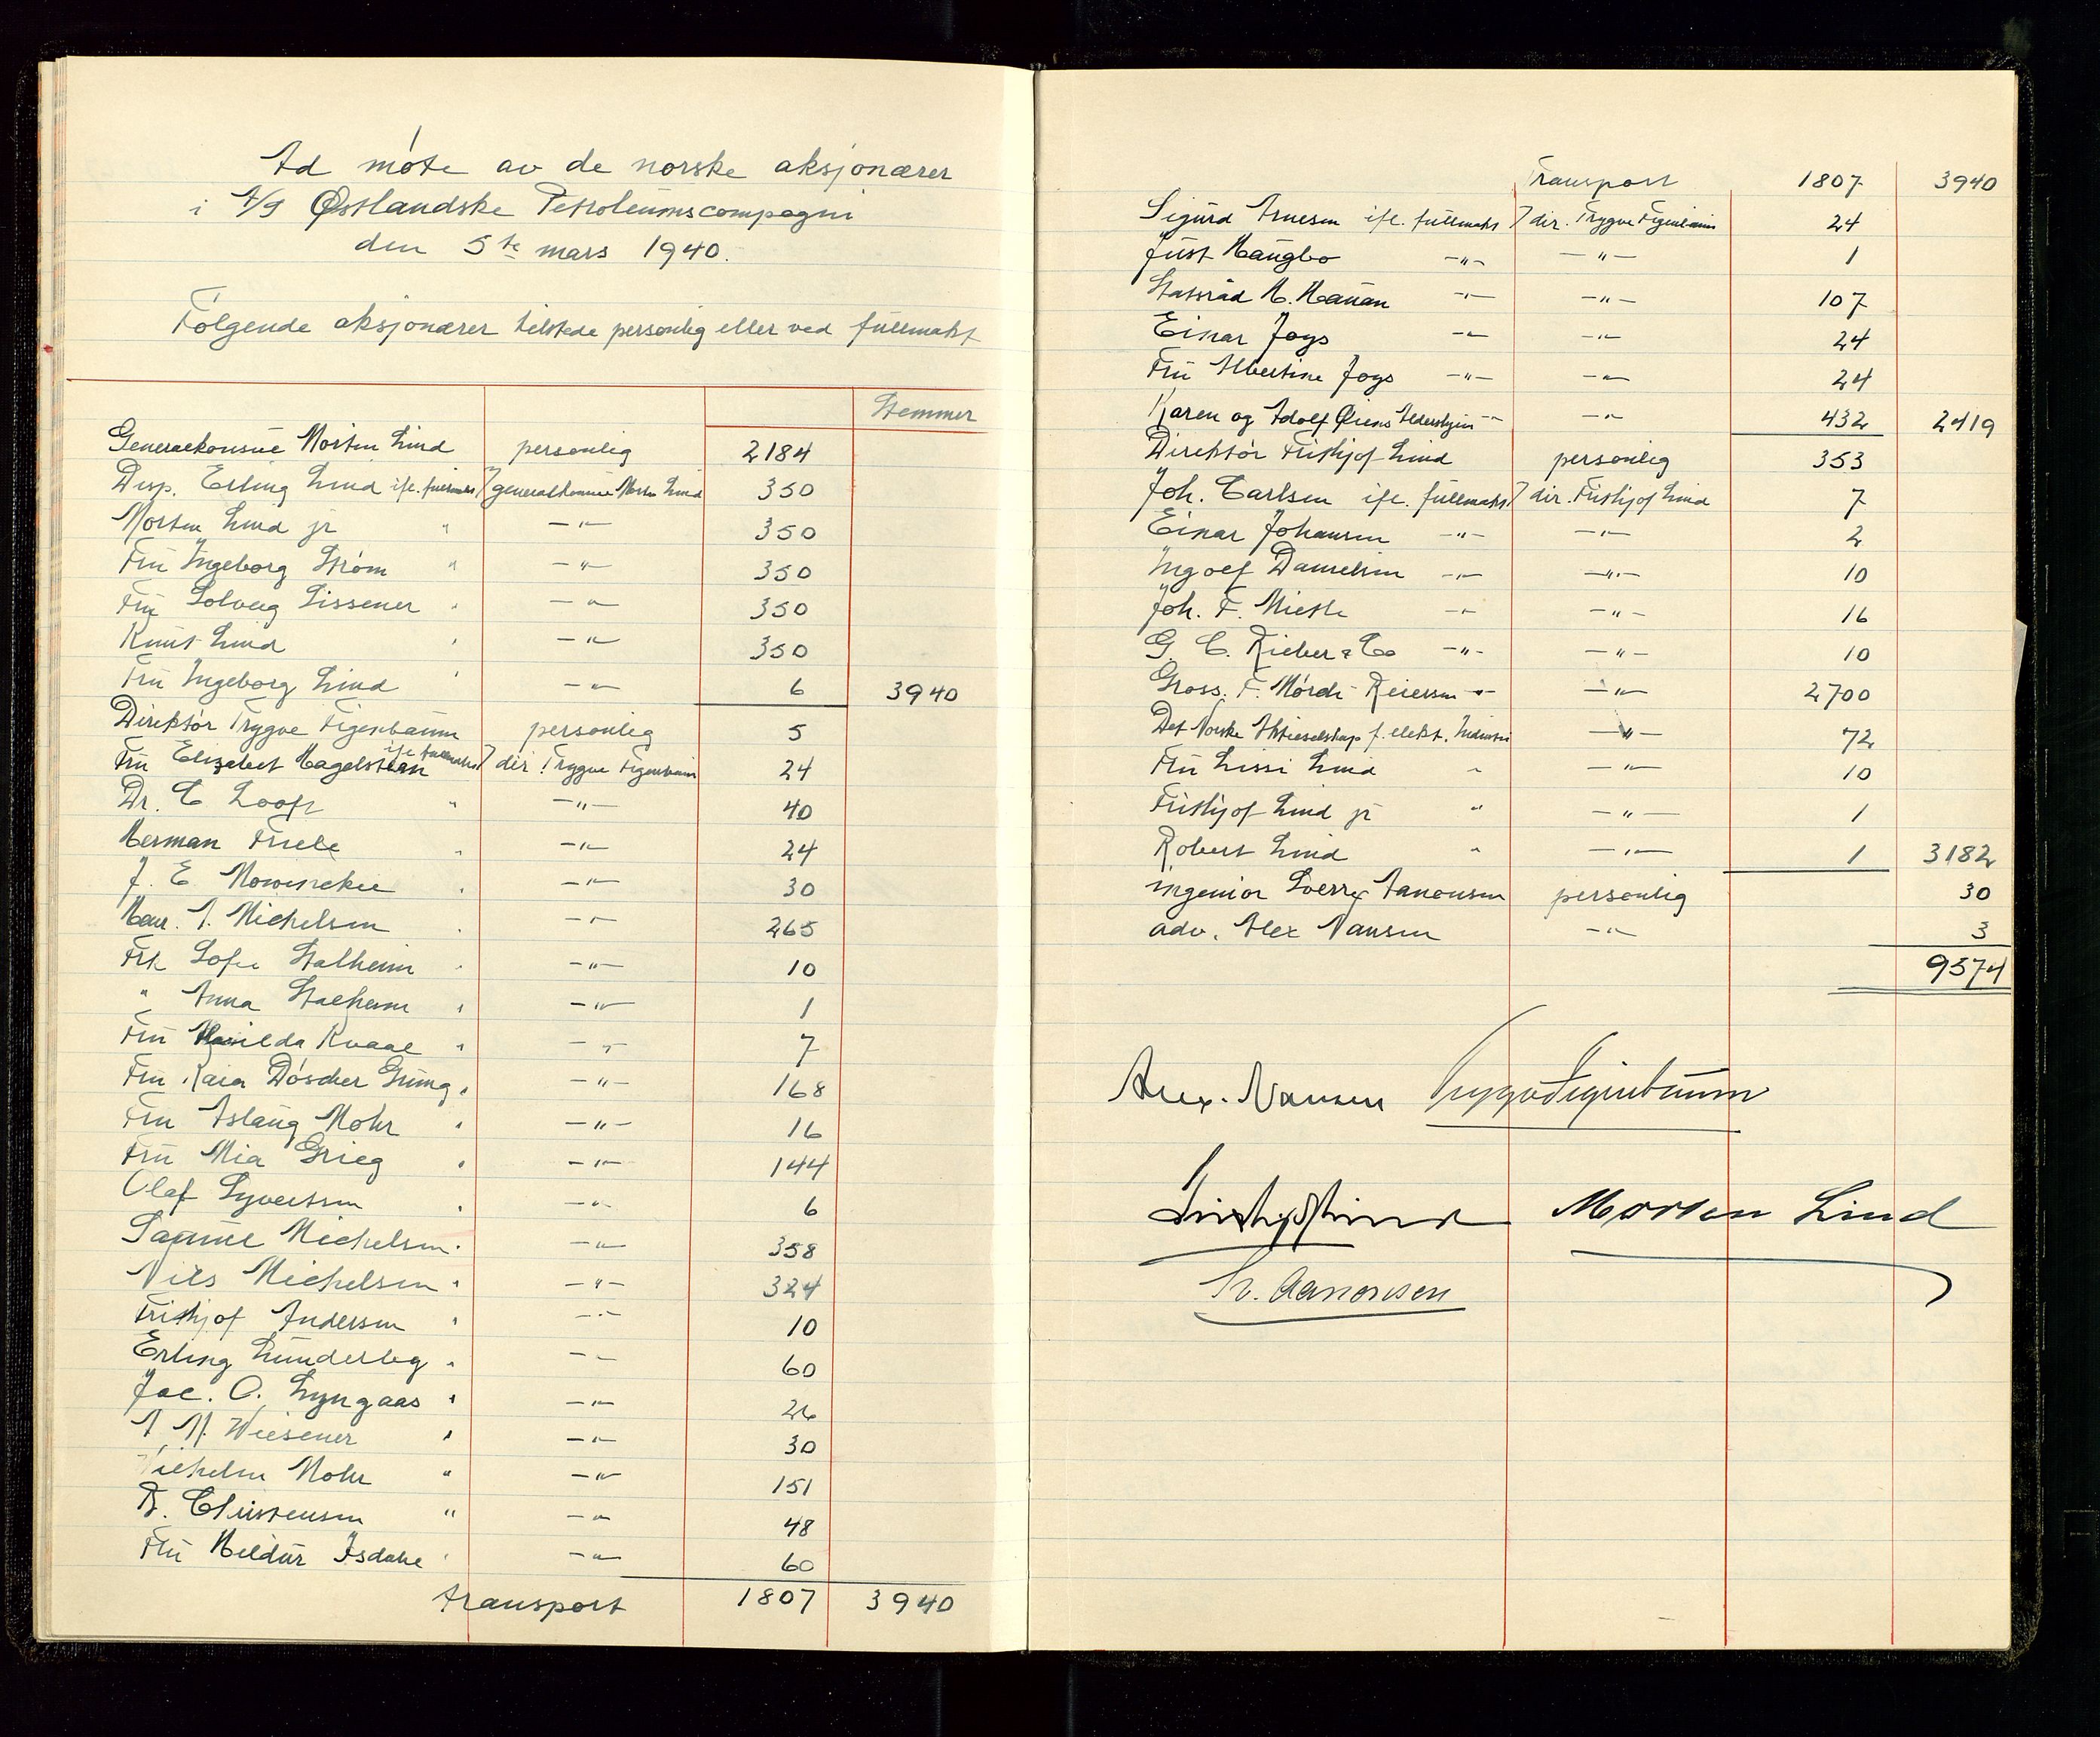 Ad møte av de norske aksjonærer
i A/S Østlandske Petroleumscompagni
den 5te mars 1940.
Følgende aksjonærer tilstede personlig eller ved fullmakt
Stemmer
Generalkonsul Morten Lind personlig 2184
Disp. Erling Lind ifl. fullmakt generalkonsul Morten Lind 350
Morten Lind jr " —"— 350
Fru Ingeborg Strøm " —"— 350
Fru Solveig Lissener " —"— 350
Knut Lind " —"— 350
Fru Ingeborg Lind " —"— 6 3940
Direktør Trygve Figenbaum personlig 5
Fru Elizabet Hagelsteen ifl. fullmakt dir. Trygve Figenbaum 24
Dr. C Looft " —"— 40
Herman Friele " —"— 24
J. E. Mowinckel " —"— 30
Henr. A. Michelsen " —"— 265
Frk Sofie Stalheim " —"— 10
" Anna Stalheim " —"— 1
Fru Kvaal " —"— 7
Fru Kaia Døscher " —"— 168
Fru Aslaug Mohr " —"— 16
Fru Mia Grieg " —"— 144
Olaf Syvertsen " —"— 6
Michelsen " —"— 358
Nils Michelsen " —"— 324
Frithjof Andersen " —"— 10
Erling " —"— 60
Jac. O. Lyngaas " —"— 26
A M. Wiesener " —"— 30
Vilhelm Mohr " —"— 151
R. Christensen " —"— 48
Fru Hildur Isdahl " —"— 60
transport 1807 3940
Transport 1807 3940
Sigurd Arnesen ifl. fullmakt dir. Trygve Figenbaum 24
Just Haugbo —"— —"— 1
Statsråd M. Hauan —"— —"— 107
Einar Joys —"— —"— 24
Fru Albertine Joys —"— —"— 24
Karen og Adolf Øiens Aldershjem —"— —"— 432 2419
Direktør Frithjof Lind personlig 353
Joh. Carlsen ifl. fullmakt dir. Frithjof Lind 7
Einar Johansen —"— —"— 2
Ingolf Danielsen —"— —"— 10
Joh. F. —"— —"— 16
G. C. Rieber & Co —"— —"— 10
Gross. F. Mørch-Reiersen —"— —"— 2700
Det Norske Aktieselskap f. elekt. Industri —"— 72
Fru Lissi Lind " —"— 10
Frithjof Lind jr " —"— 1
Robert Lind " —"— 1 3182
ingeniør Sverre Aanonsen personlig 30
adv. Alex Nansen —"— 3
9574
Alex. Nansen Trygve Figenbaum
Frithjof Lind Morten Lind
Sv. Aanonsen